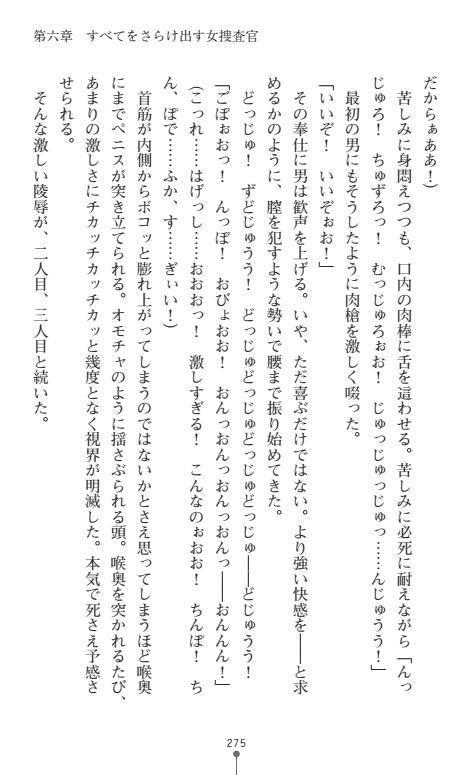 第六章　すべてをさらけ出す女捜査官
だからぁああ！）
　苦しみに身悶えつつも、口内の肉棒に舌を這わせる。苦しみに必死に耐えながら「んっ
じゅろ！　ちゅずろっ！　むっじゅろぉお！　じゅっじゅっじゅっ……んじゅうう！」
　最初の男にもそうしたように肉槍を激しく啜った。
「いいぞ！　いいぞぉお！」
　その奉仕に男は歓声を上げる。いや、ただ喜ぶだけではない。より強い快感を――と求
めるかのように、膣を犯すような勢いで腰まで振り始めてきた。
　どっじゅ！　ずどじゅう！　どっじゅどっじゅどっじゅどっじゅ――どじゅうう！
「ごぽぉおっ！　んっぽ！　おびょおお！　おんっおんっおんっおんっ――おんんん！」
（こっれ……はげっし……おおおっ！　激しすぎる！　こんなのぉおお！　ちんぽ！　ち
ん、ぽで……ふか、す……ぎぃい！）
　首筋が内側からボコッと膨れ上がってしまうのではないかとさえ思ってしまうほど喉奥
にまでペニスが突き立てられる。オモチャのように揺さぶられる頭。喉奥を突かれるたび、
あまりの激しさにチカッチカッチカッと幾度となく視界が明滅した。本気で死さえ予感さ
せられる。
　そんな激しい陵辱が、二人目、三人目と続いた。
275